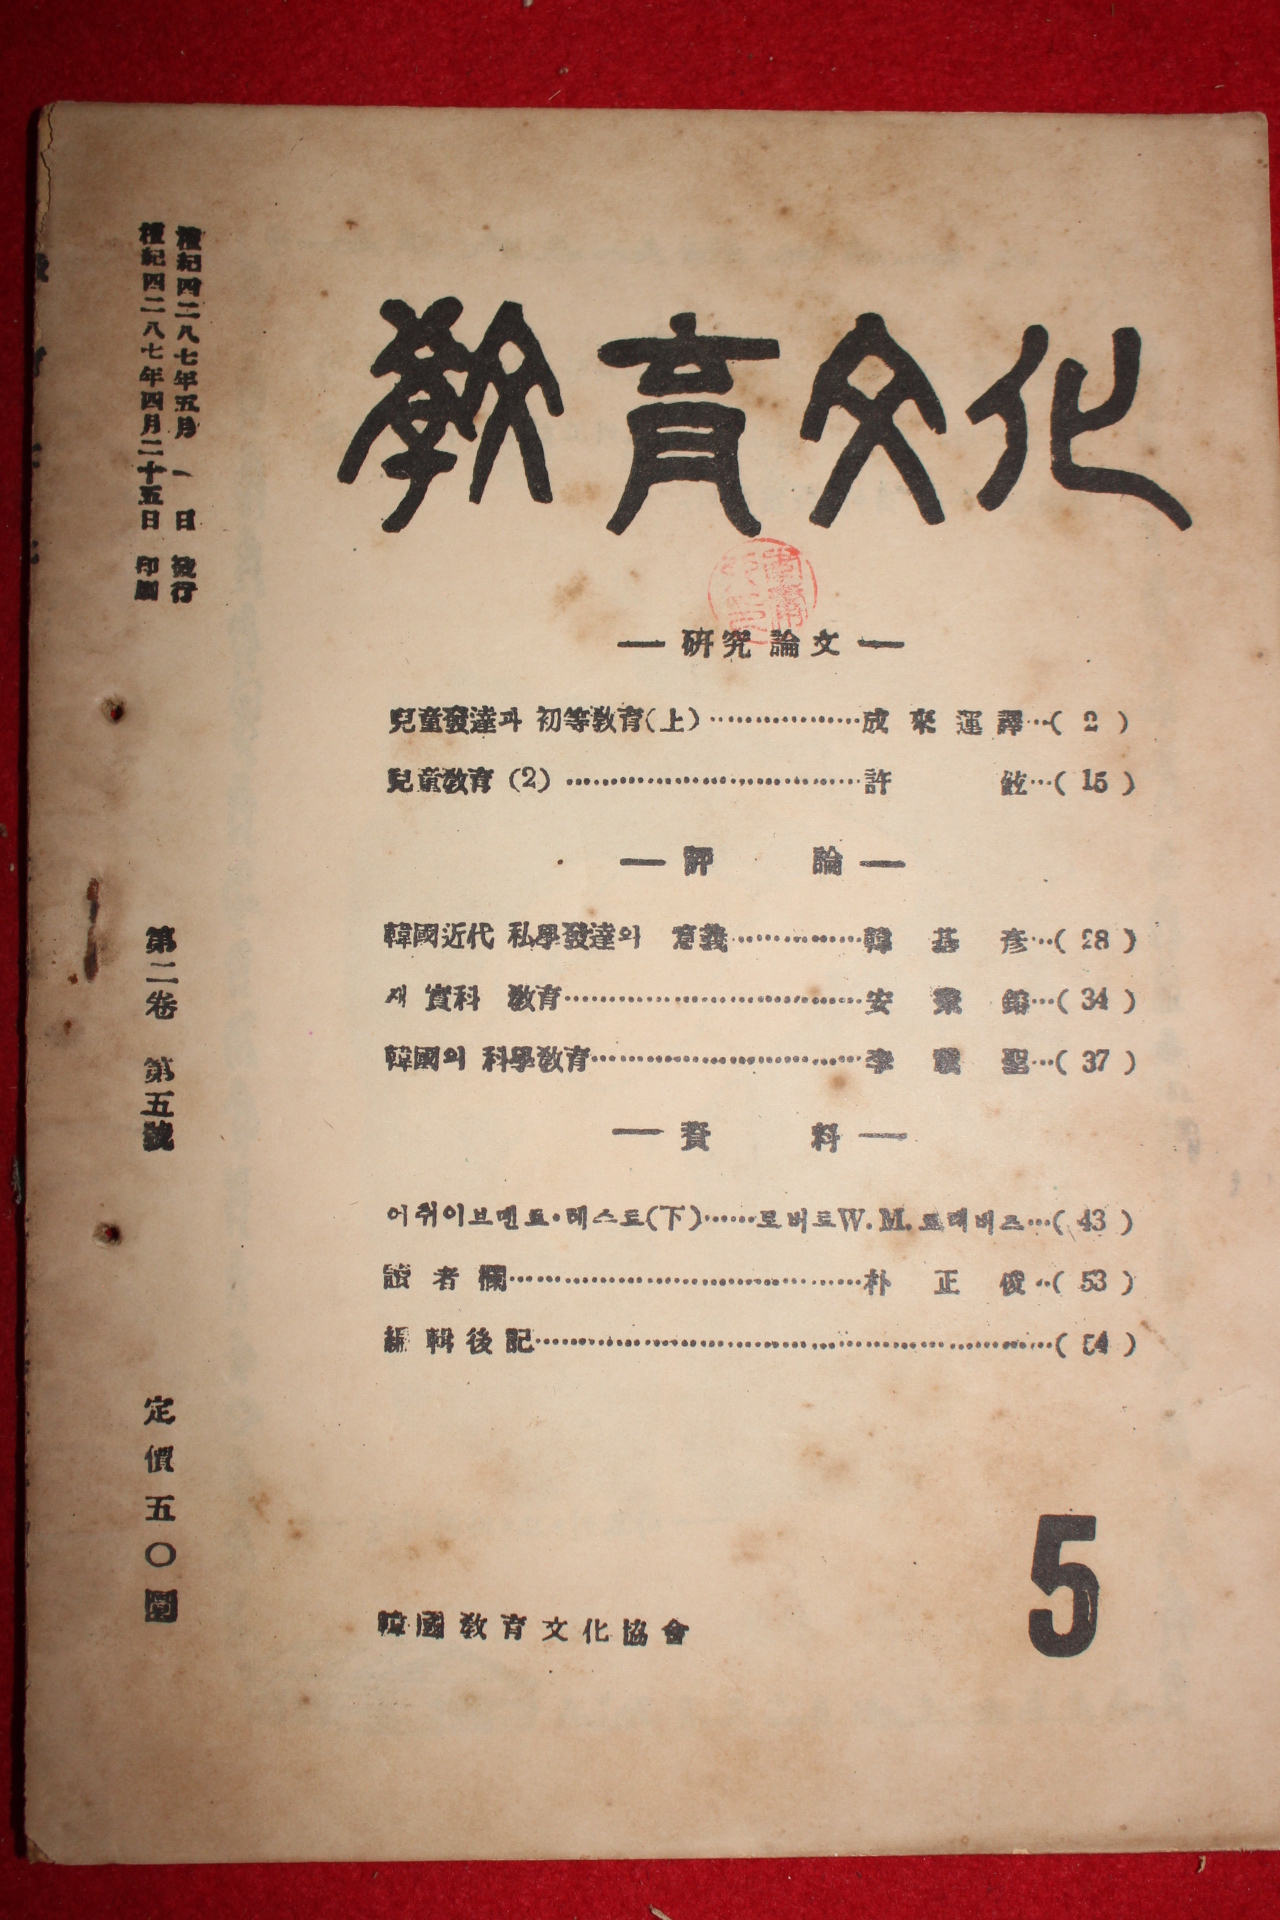 檀紀四二八七年五月一日 發行
檀紀四二八七年四月二十五日 印刷
第二卷 第五號
定價五〇圜
教育文化
— 硏究論文 —
兒童發達과 初等敎育(上)………………成來運譯…( 2 )
兒童敎育 (2) ………………………………許 鉉…( 15 )
— 評 論 —
韓國近代 私學發達의 意義……………韓基彦…( 28 )
재 實科 敎育………………………………安 鎔…( 34 )
韓國의 科學敎育……………………………李 聖…( 37 )
— 資 料 —
어취이브멘트·테스트(下)……로버트W.M.트래버즈…( 43 )
讀者欄……………………………………朴正俊…( 53 )
編輯後記………………………………………………………( 54 )
韓國敎育文化協會
5